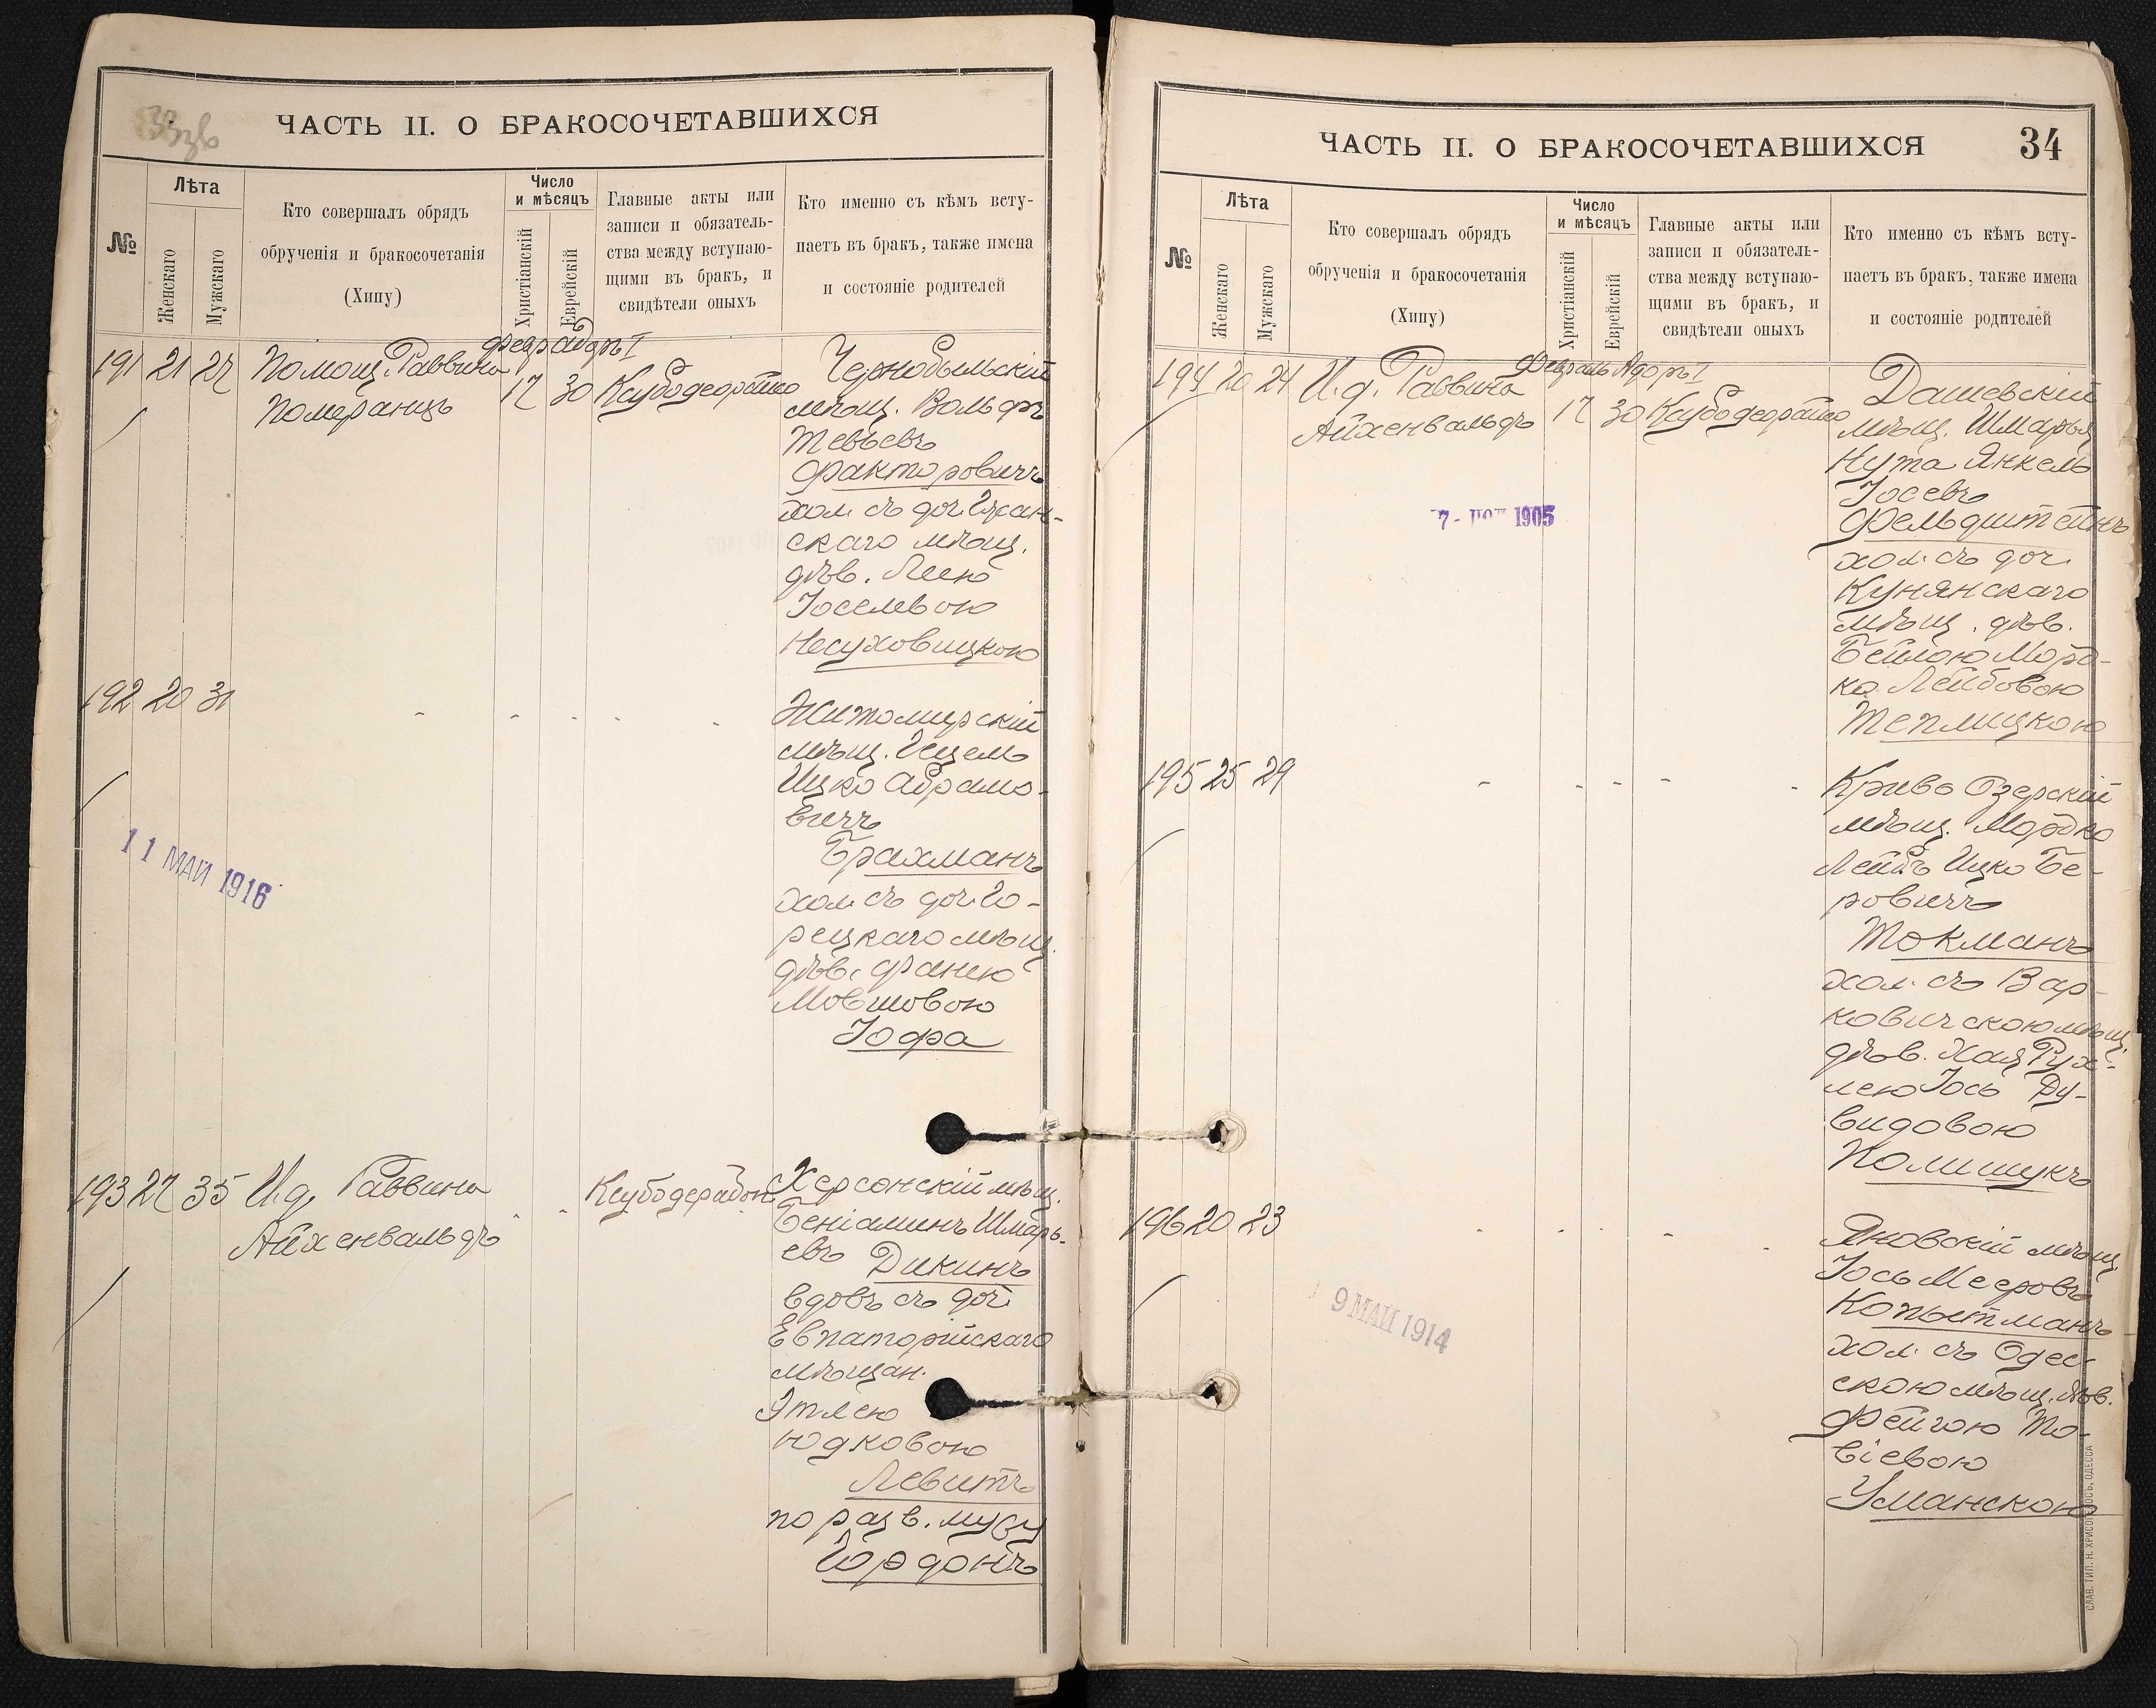 ЧАСТЬ II. О БРАКОСОЧЕТАВШИХСЯ
№
Лѣта
Женскаго
Мужскаго
Кто совершалъ обрядъ
обрученія и бракосочетанія
(Хипу)
Число
и мѣсяцъ
Христіанскій
Еврейскій
Главные акты или
записи и обязатель-
ства между вступаю-
щими въ бракъ, и
свидѣтели оныхъ
Кто именно съ кѣмъ всту-
паетъ въ бракъ, также имена
и состояніе родителей
191 21 27 Помощ. Раввина
Померанцъ
17 30
Чернобыльскій
мѣщ. Вольфъ
Тевьевъ
Факторовичъ
хол. съ доч. Ржан-
скаго мѣщ.
дѣв. Леею
Іоселевою
Несуховицкою
192 20 31 - - - - -
Житомирскій
мѣщ. Ицель
Ицко Абрамо-
вичъ
Брахманъ
хол. съ доч. Го-
рецкаго мѣщ.
дѣв. Фанею
Мовшовою
Іофа
11 МАЙ 1916
193 27 35 И. д. Раввина
Айхенвальдъ
- -
Херсонскій мѣщ.
Беніаминъ Шмарь-
евъ Дикинъ
вдовъ съ доч.
Евпаторійскаго
мѣщан.
Этлею
Юдковою
Левитъ
по разв. мужу
Гордонъ
ЧАСТЬ II. О БРАКОСОЧЕТАВШИХСЯ 34
№
Лѣта
Женскаго
Мужскаго
Кто совершалъ обрядъ
обрученія и бракосочетанія
(Хипу)
Число
и мѣсяцъ
Христіанскій
Еврейскій
Главные акты или
записи и обязатель-
ства между вступаю-
щими въ бракъ, и
свидѣтели оныхъ
Кто именно съ кѣмъ всту-
паетъ въ бракъ, также имена
и состояніе родителей
Февраль Адоръ I
194 20 24 И. д. Раввина
Айхенвальдъ
17 30
Дашевскій
мѣщ. Шмарья
Нута Янкель
Іосевъ
Фельдштейнъ
хол. съ доч.
Кунянскаго
мѣщ. дѣв.
Бейлою Морд-
ко Лейбовою
Теплицкою
7 - 1905
195 25 29 - - - - -
Криво Озерскій
мѣщ. Мордко
Лейбъ Ицко Бе-
ровичъ
Токманъ
хол. съ Вар-
ковичскою мѣщ.
дѣв. Хая Рух-
лею Іось Ду-
видовою
Полищукъ
196 20 23 - - - - -
Яновскій мѣщ.
Іось Мееровъ
Копытманъ
хол. съ Одес-
скою мѣщ. дѣв.
Фейгою То-
віевою
Уманскою
9 МАЙ 1914